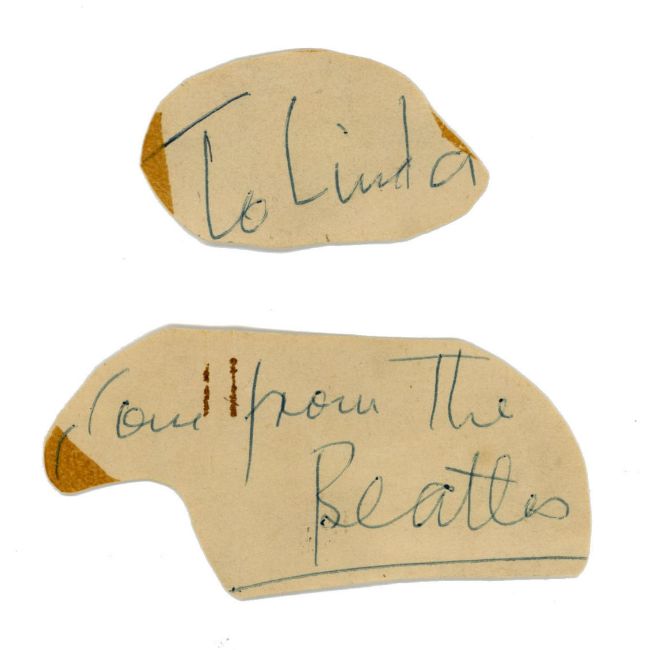 To Linda
Love from The
Beatles